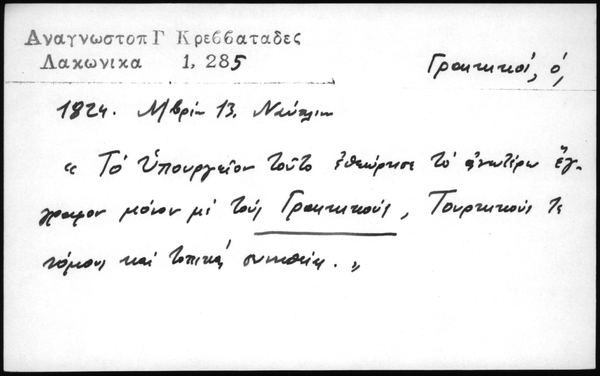 Αναγνωστοπ Γ Κρεββαταδες
Λακωνικα 1, 285
Γραικικοί, ό,
1824. Ν/βρίου 13. Ναύπλιον
« Τό Ὑπουργεῖον τοῦτο ἐθεώρησε τό ἀνωτέρω ἔγ-
γραφον μόνον μέ τούς Γραικικούς, Τουρκικούς τε
νόμους καί τοπικά συνήθεια. »